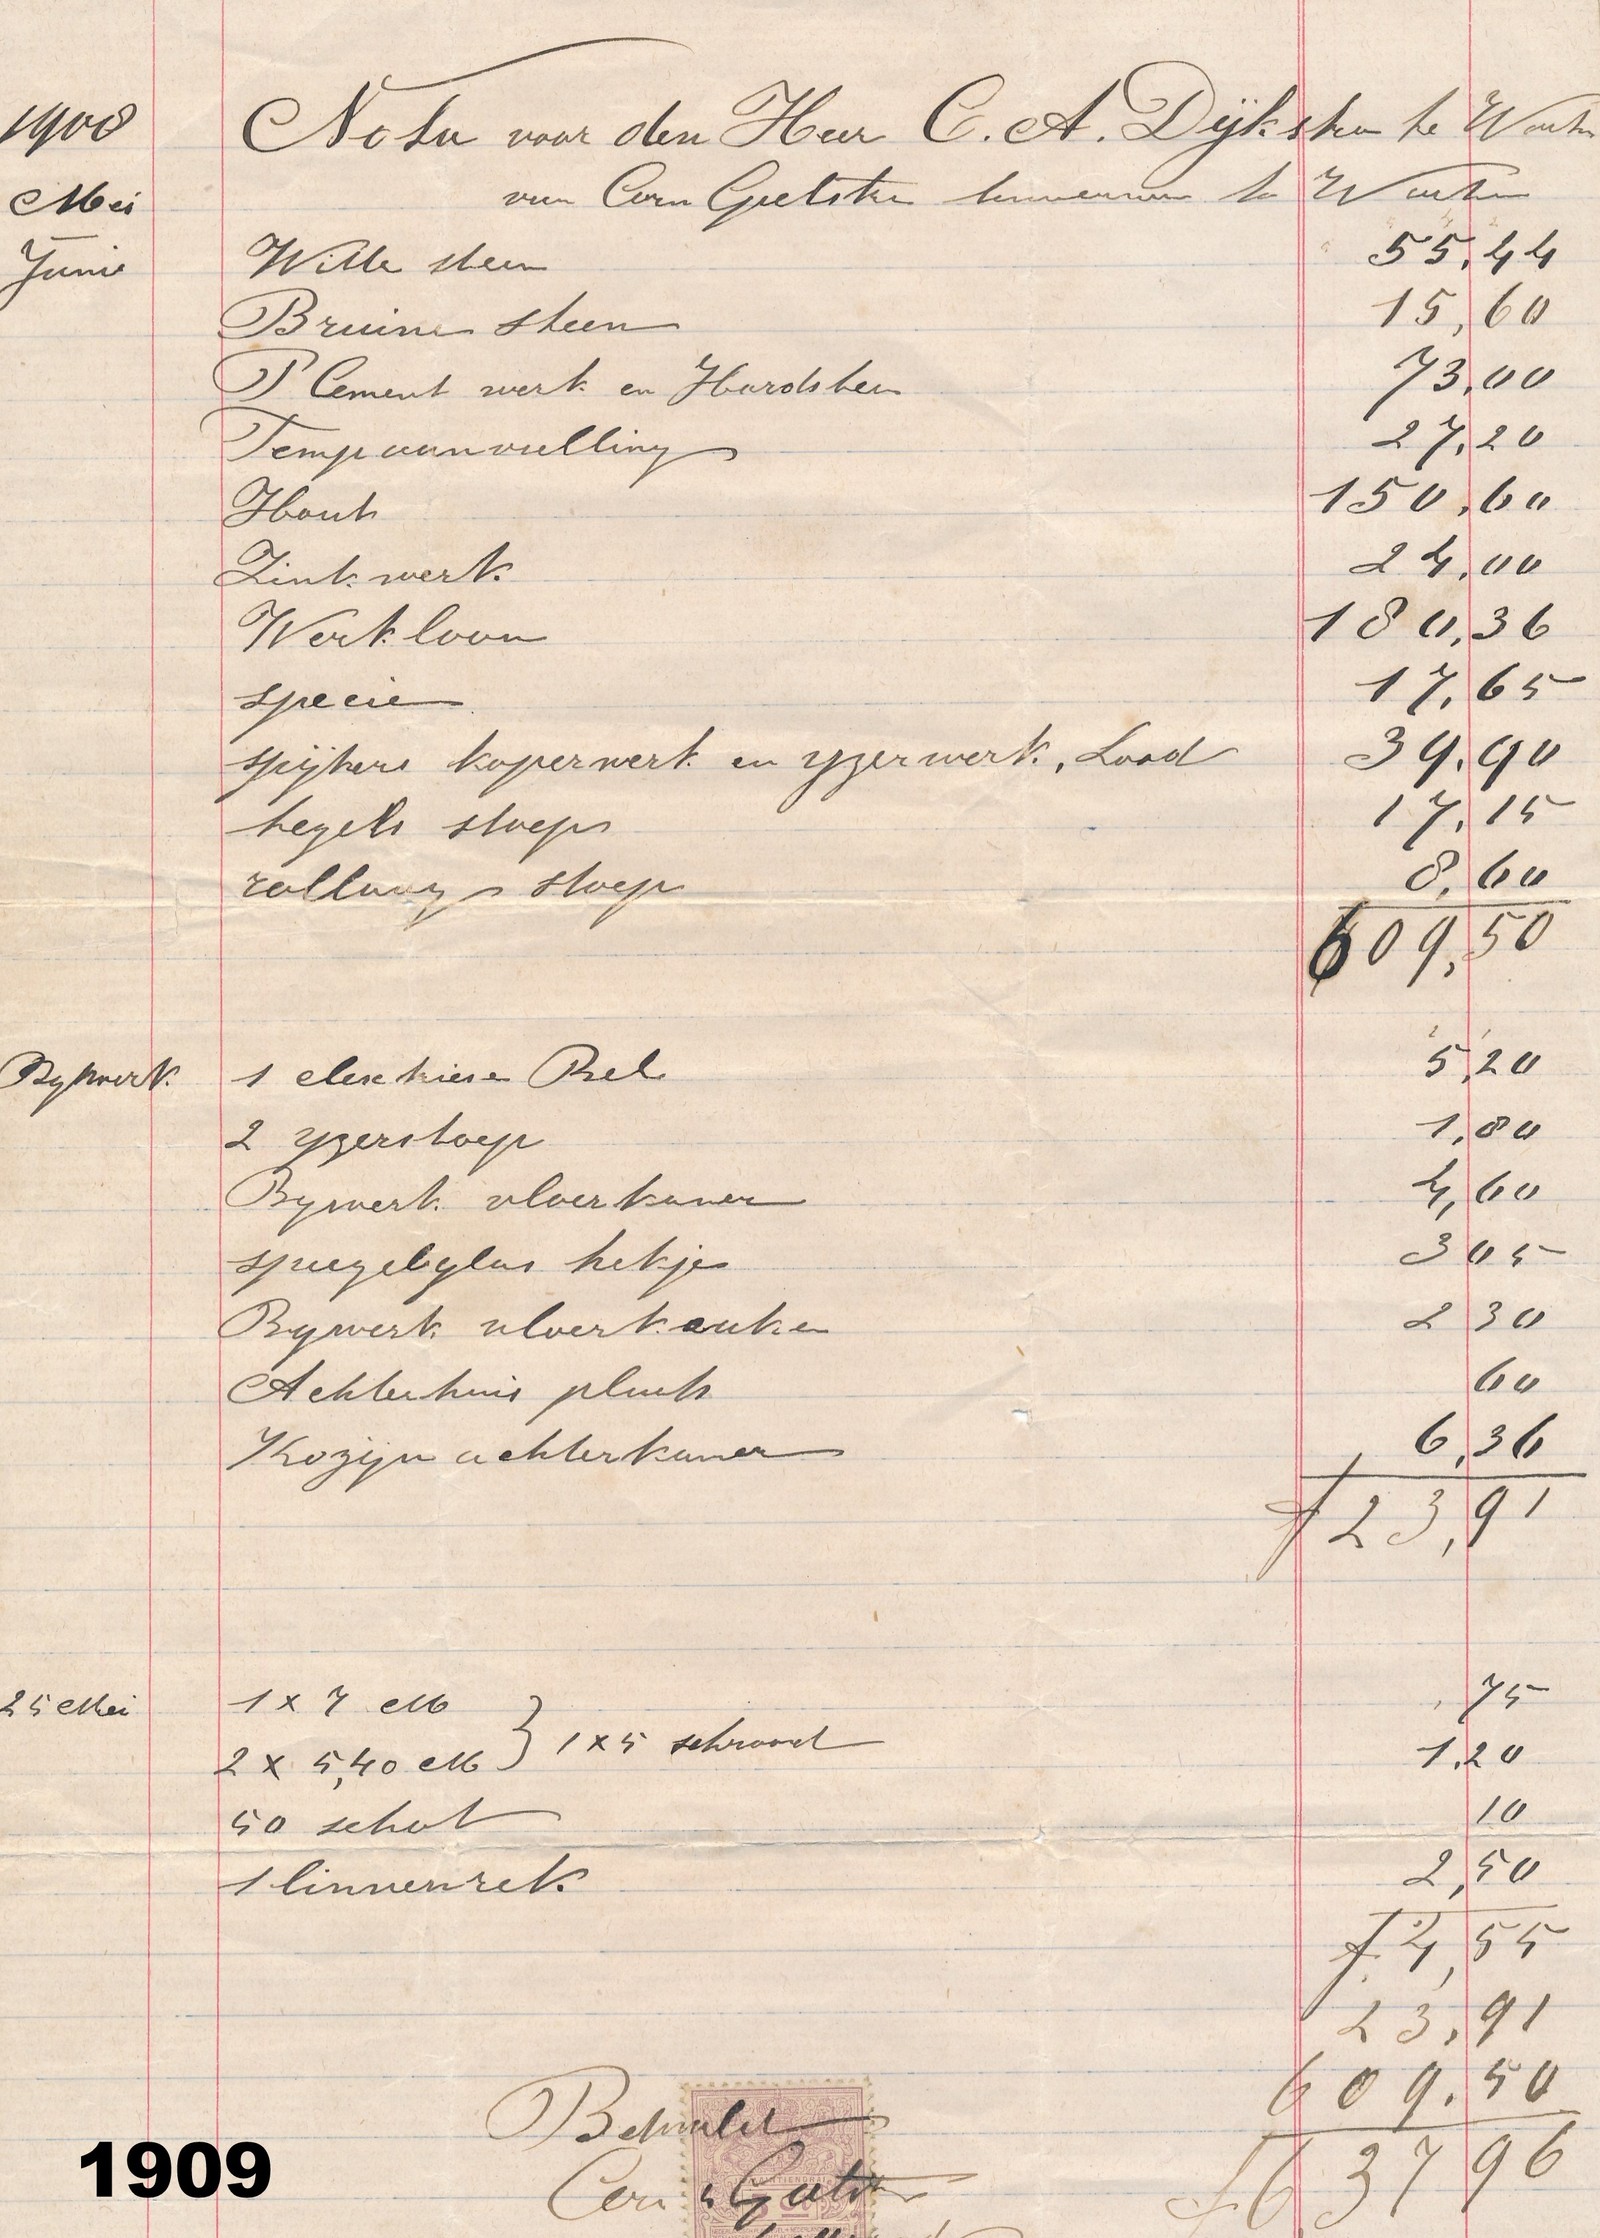 1908 Nota voor den Heer C. A. Dijkstra te
Mei van Corn te
Junie Witte steen 55,44
Bruine steen 15,60
P Cement werk en Hardsteen 73,00
Tempaanvulling 27,20
Hout 150,60
Zink werk 24,00
Werkloon 180,36
specie 17,65
spijkers koperwerk en yzerwerk, Lood 39,90
tegels stoep 17,15
rollaag stoep 8,60
609,50
Bywerk 1 Bel 5,20
2 yzerstoep 1,80
Bywerk vloerkamer 4,60
spiegelglas hekje 3 05
Bywerk vloerkeuken 2 30
Achterhuis plaats 60
Kozijn achterkamer 6,36
f 23,91
25 Mei 1 x 7 M 75
2 x 5,40 M } 1 x 5 schrood 1,20
50 schot 10
1 linnenrek 2,50
f. 4,55
23,91
609,50
Betaald
f 637 96
1909